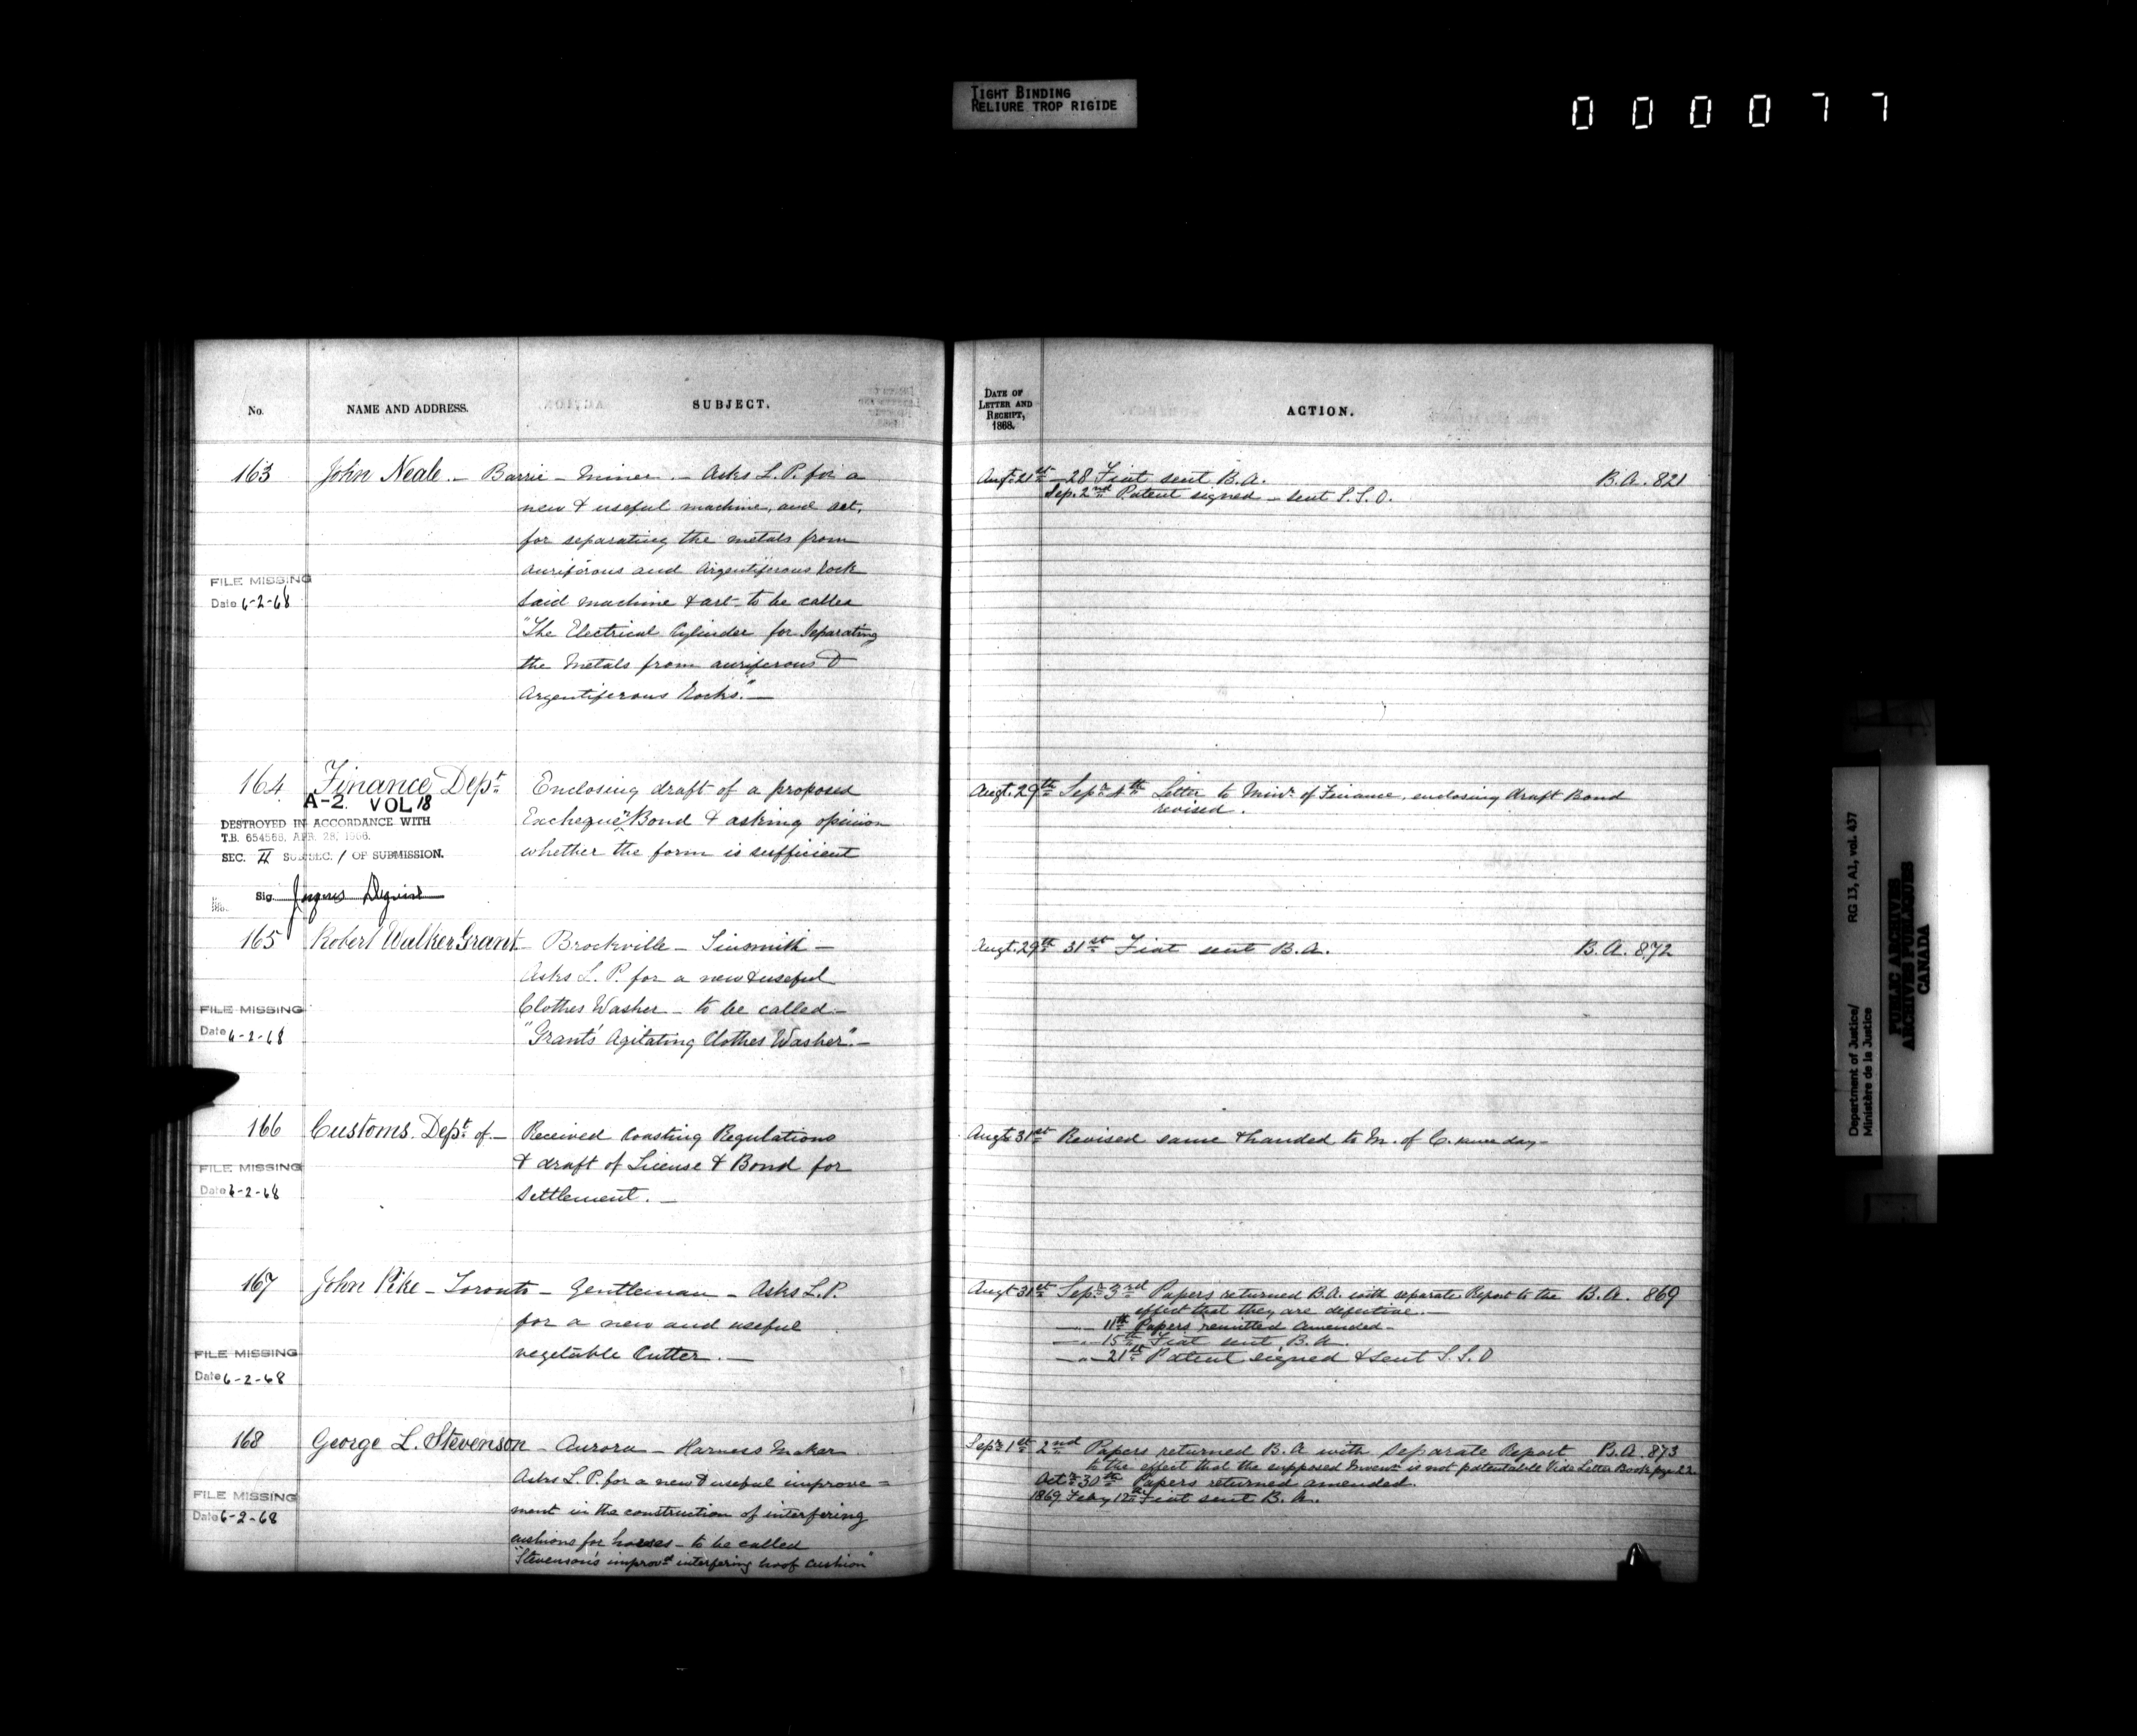 TIGHT BINDING
RELIURE TROP RIGIDE
000077
No. NAME AND ADDRESS. SUBJECT.
163 John Neale. - Barrie - Miner. - Asks L. P. for a
new & useful machine, and art,
for separating the metals from
auriferous and Argentiferous rock
said machine & art to be called
"The Electrical Cylinder for Separating
the Metals from auriferous &
Argentiferous Rocks." -
FILE MISSING
Date 6-2-68
164 Finance Dept Enclosing draft of a proposed
Exchequer Bond & asking opinion
whether the form is sufficient
A-2. VOL 18
DESTROYED IN ACCORDANCE WITH
T.B. 654568, APR. 28, 1966.
SEC. II SUBSEC. 1 OF SUBMISSION.
Sig.
165 Robert Walker Grant - Brockville - Tinsmith -
Asks L. P. for a new & useful
Clothes Washer - to be called -
"Grant's Agitating Clothes Washer". -
FILE MISSING
Date 6-2-68
166 Customs. Dept. of - Received Coasting Regulations
& draft of License & Bond for
settlement. -
FILE MISSING
Date 6-2-68
167 John Pike - Toronto - Gentleman - Asks L. P.
for a new and useful
vegetable Cutter. -
FILE MISSING
Date 6-2-68
168 George L. Stevenson - Aurora - Harness Maker
Asks L. P. for a new & useful improve=
ment in the construction of interfering
cushions for horses - to be called
"Stevenson's improvd interfering hoof cushion"
FILE MISSING
Date 6-2-68
DATE OF
LETTER AND
RECEIPT,
1868.
ACTION.
Augt. 21st - 28 Fiat sent B. A. B. A. 821
Sep. 2nd Patent signed - sent S. S. O.
Augt. 29th Sepr. 4th Letter to Minr. of Finance, enclosing draft Bond
revised.
Augt. 29th 31st Fiat sent B. A. B. A. 872
Augt 31st Revised same & handed to M. of C. same day -
Augt 31st Sepr. 3rd Papers returned B. A. with separate Report to the B. A. 869
effect that they are defective. -
11th Papers remitted amended -
15th Fiat sent B. A.
21st Patent signed & sent S. S. O
Sepr. 1st 2nd Papers returned B. A with separate Report B. A. 873
to the effect that the supposed Invent. is not patentable Vide Letter Book page 22
Octr. 30th Papers returned amended.
1869 Feby 12th Fiat sent B. A.
Department of Justice/
Ministère de la Justice
RG 13, A1, vol. 437
PUBLIC ARCHIVES
ARCHIVES PUBLIQUES
CANADA